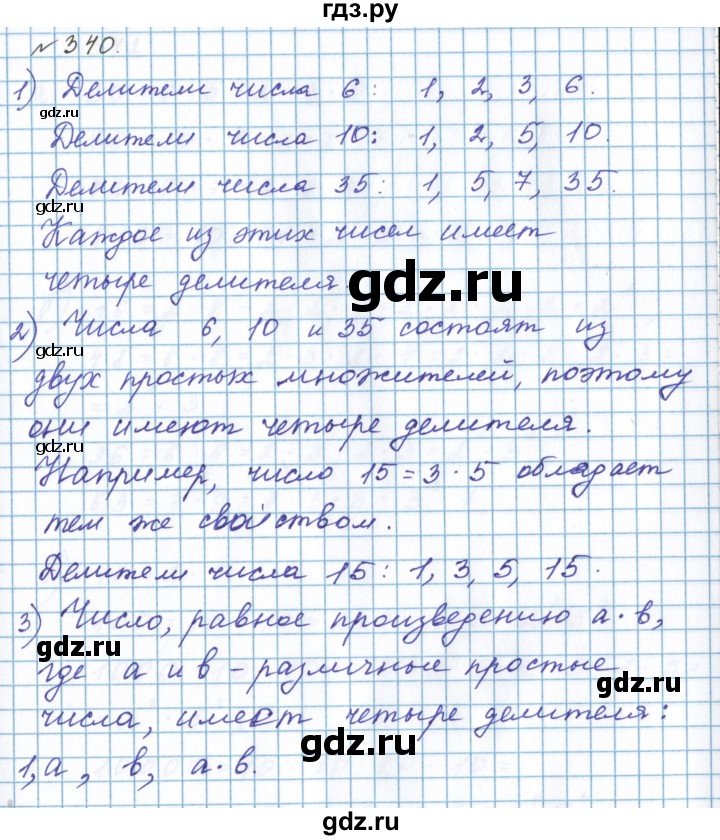 гдз.ру
№ 340.
1) Делители числа 6: 1, 2, 3, 6.
gdz.ru
Делители числа 10: 1, 2, 5, 10.
Делители числа 35: 1, 5, 7, 35.
gdz.ru
Каждое из этих чисел имеет
четыре делителя
gdz.ru
2) Числа 6, 10 и 35 состоят из
gdz.ru
двух простых множителей, поэтому
они имеют четыре делителя.
gdz.ru
Например, число 15 = 3 · 5 обладает
gdz.ru
тем же свойством.
Делители числа 15: 1, 3, 5, 15.
3) Число, равное произведению а · в,
gdz.ru
где а и в - различные простые
gdz.ru
числа, имеют четыре делителя:
gdz.ru
1, а, в, а · в.
gdz.ru